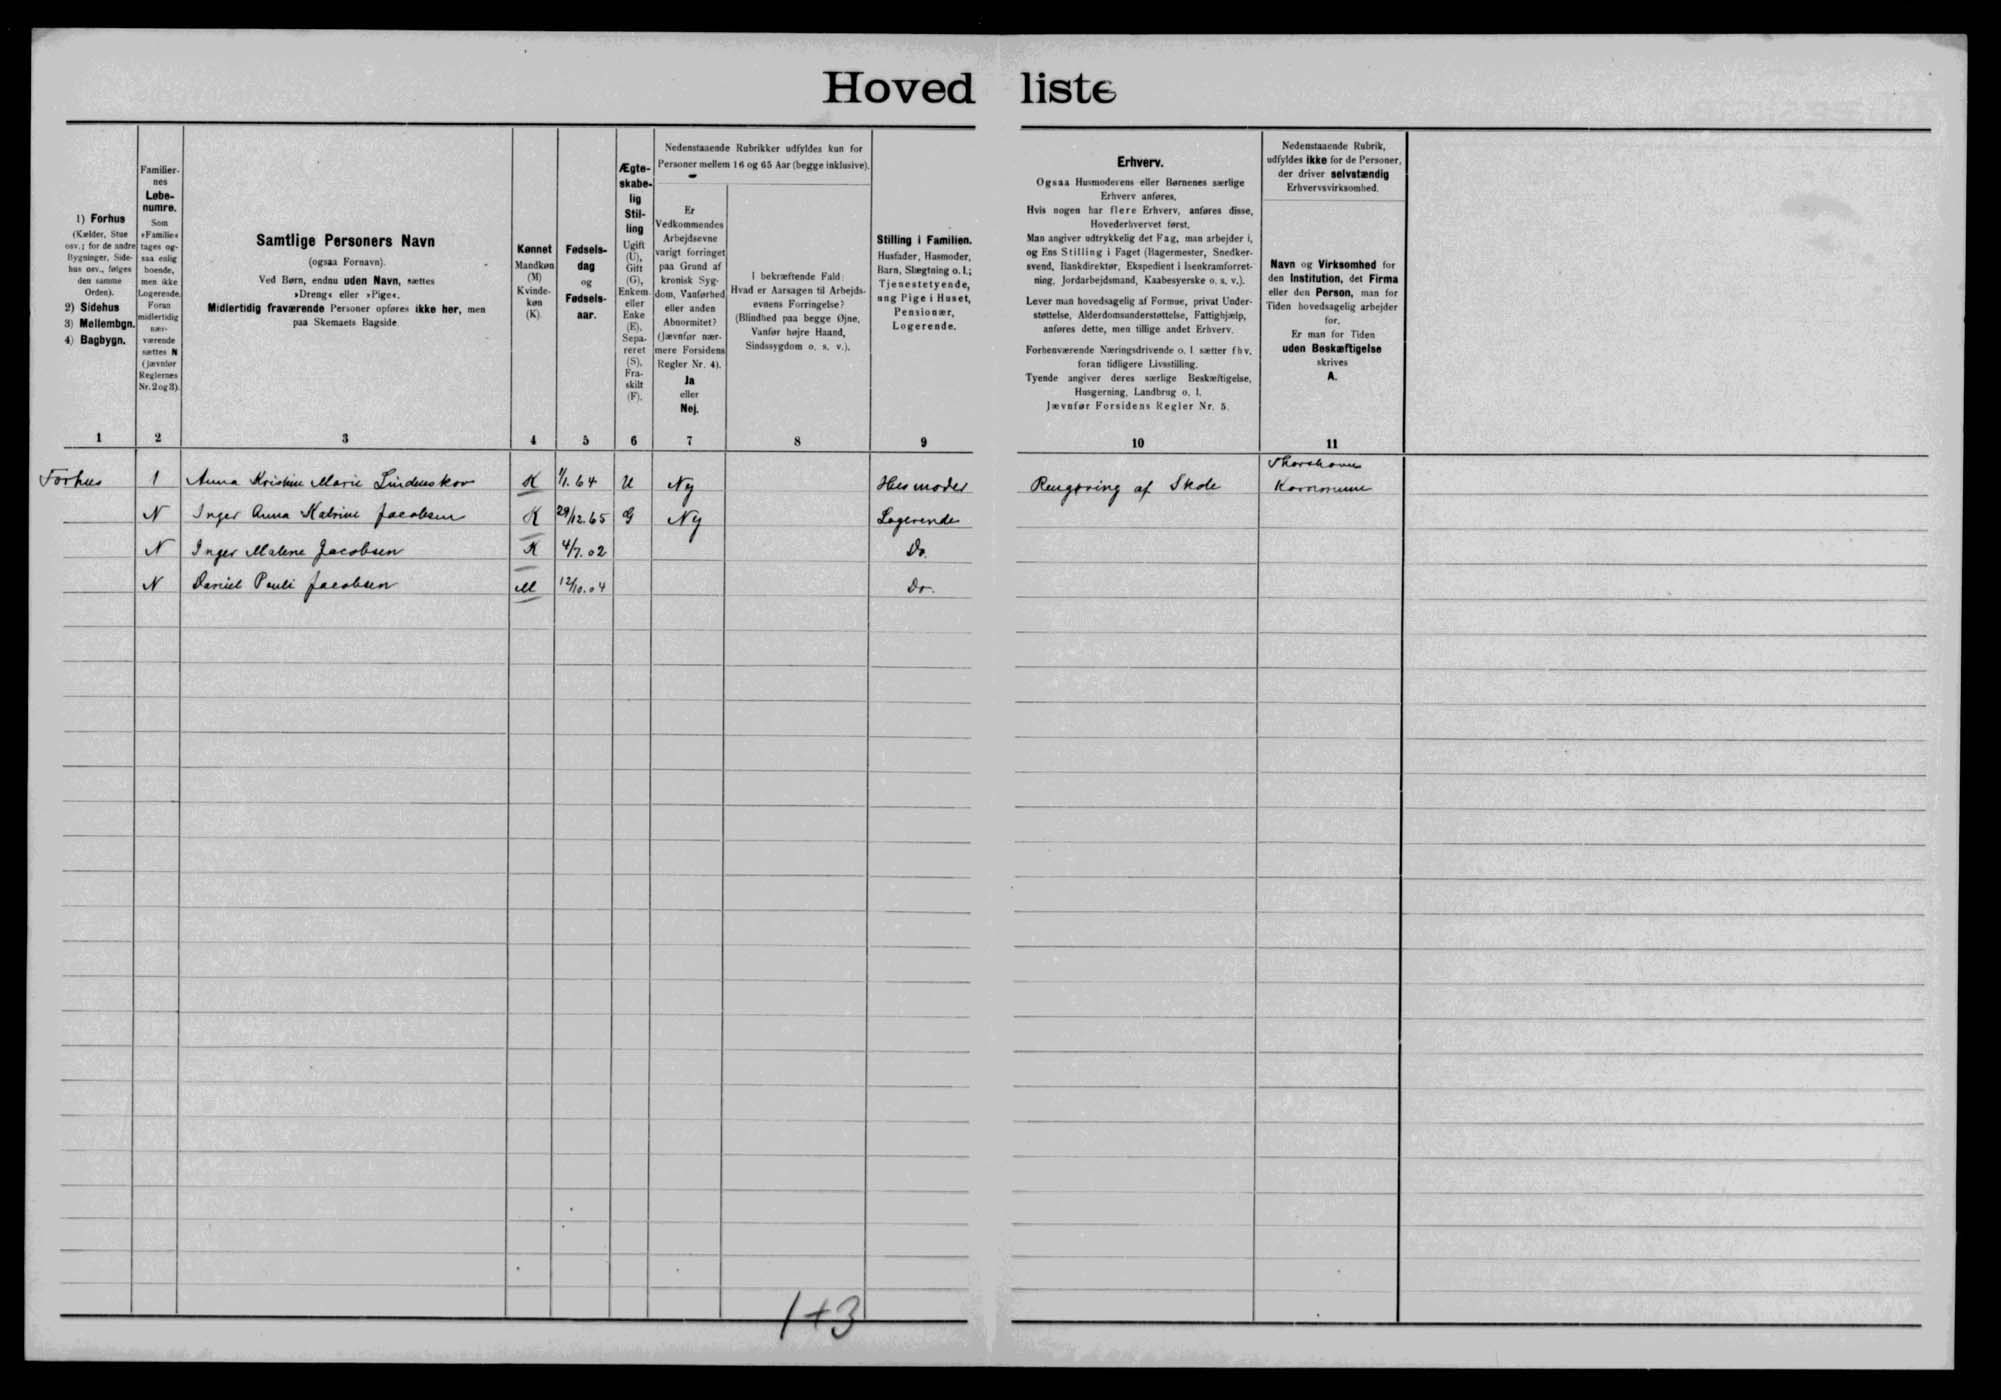 Hovedliste
1) Forhus
(Kælder, Stue
osv.; for de andre
Bygninger, Side-
hus osv., følges
den samme
Orden).
2) Sidehus
3) Mellembgn.
4) Bagbygn.
Familier-
nes
Løbe-
numre.
Som
»Familie«
tages og-
saa enlig
boende,
men ikke
Logerende.
Foran
midlertidig
nær-
værende
sættes N
(jævnfør
Reglernes
Nr. 2 og 3).
Samtlige Personers Navn
(ogsaa Fornavn).
Ved Børn, endnu uden Navn, sættes
»Dreng« eller »Pige«.
Midlertidig fraværende Personer opføres ikke her, men
paa Skemaets Bagside.
Kønnet
Mandkøn
(M)
Kvinde-
køn
(K).
Fødsels-
dag
og
Fødsels-
aar.
Ægte-
skabe-
lig
Stil-
ling
Ugift
(U),
Gift
(G),
Enkem.
eller
Enke
(E),
Sepa-
reret
(S),
Fra-
skilt
(F).
Nedenstaaende Rubrikker udfyldes kun for
Personer mellem 16 og 65 Aar (begge inklusive).
Er
Vedkommendes
Arbejdsevne
varigt forringet
paa Grund af
kronisk Syg-
dom, Vanførhed
eller anden
Abnormitet?
(Jævnfør nær-
mere Forsidens
Regler Nr. 4).
Ja
eller
Nej.
I bekræftende Fald:
Hvad er Aarsagen til Arbejds-
evnens Forringelse?
(Blindhed paa begge Øjne,
Vanfør højre Haand,
Sindssygdom o. s. v.).
Stilling i Familien.
Husfader, Husmoder,
Barn, Slægtning o. l.;
Tjenestetyende,
ung Pige i Huset,
Pensionær,
Logerende.
Erhverv.
Ogsaa Husmoderens eller Børnenes særlige
Erhverv anføres.
Hvis nogen har flere Erhverv, anføres disse,
Hovederhvervet først.
Man angiver udtrykkelig det Fag, man arbejder i,
og Ens Stilling i Faget (Bagermester, Snedker-
svend, Bankdirektør, Ekspedient i Isenkramforret-
ning, Jordarbejdsmand, Kaabesyerske o. s. v.).
Lever man hovedsagelig af Formue, privat Under-
støttelse, Alderdomsunderstøttelse, Fattighjælp,
anføres dette, men tillige andet Erhverv.
Forhenværende Næringsdrivende o. l. sætter fhv.
foran tidligere Livsstilling.
Tyende angiver deres særlige Beskæftigelse,
Husgerning, Landbrug o. l.
Jævnfør Forsidens Regler Nr. 5.
Nedenstaaende Rubrik,
udfyldes ikke for de Personer,
der driver selvstændig
Erhvervsvirksomhed.
Navn og Virksomhed for
den Institution, det Firma
eller den Person, man for
Tiden hovedsagelig arbejder
for.
Er man for Tiden
uden Beskæftigelse
skrives
A.
1 2 3 4 5 6 7 8 9 10 11
Forhus 1 Anna Kristine Marie Lindenskov K 1/1.64 U Nej Husmoder Rengøring af Skole Thorshavns Kommune
N Inger Anna Katrine Jacobsen K 29/12.65 G Nej Logerende
N Inger Malene Jacobsen K 4/7.02 Do.
N Daniel Pauli Jacobsen M 12/10.04 Do.
1+3